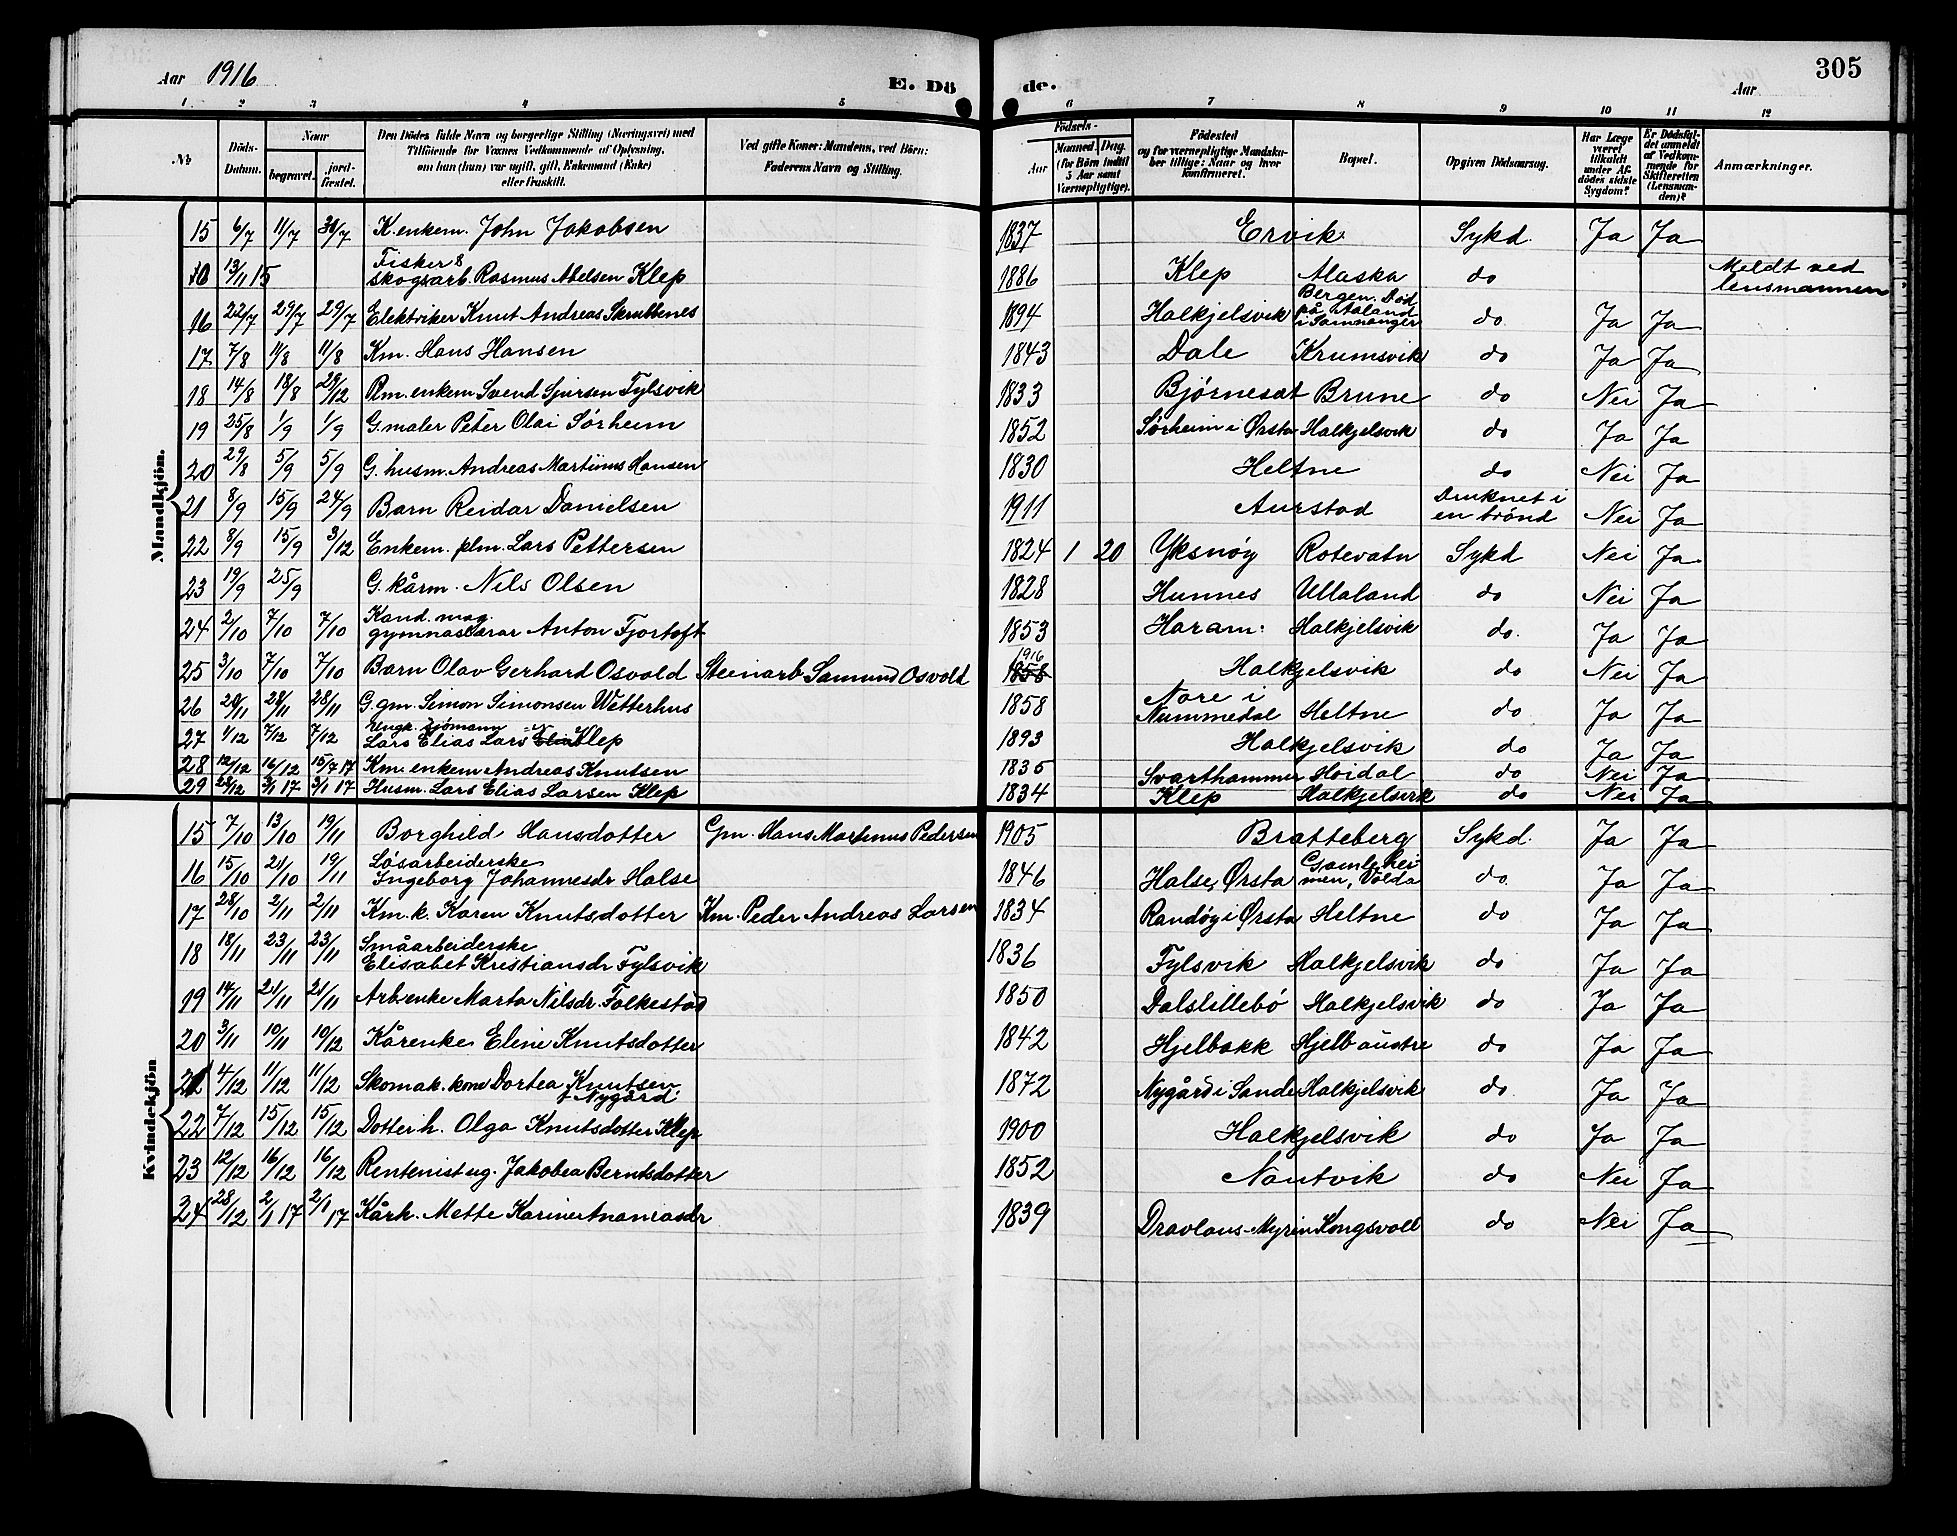 Aar 1916
E. Dö
de.
Aar
305
1 2 3 3 4 5 6 7 8 9 10 11 12
№
Döds-Datum.
Naar
begravet.
jord-fæstet.
Den Dödes fulde Navn og borgerlige Stilling (Næringsvei) med
Tilföiende for Voxnes Vedkommende af Oplysning,
om han (hun) var ugift, gift, Enkemand (Enke)
eller fraskilt.
Ved gifte Koner: Mandens, ved Börn:
Faderens Navn og Stilling.
Födsels-
Aar
Maaned. Dag.
(for Börn indtil 5 Aar samt Værnepligtige).
Födested
og for værnepligtige Mandskaber tillige: Naar og hvor konfirmeret.
Bopæl.
Opgiven Dödsaarsag.
Har Læge været tilkaldt under Afdödes sidste Sygdom?
Er Dödsfaldet anmeldt af Vedkommende for Skifteretten (Lensmanden)?
Anmærkninger.
Mandkjön.
15 6/7 11/7 30/7 K. enkem. John Jakobsen 1837 Ervik Sykd. Ja Ja
10 13/11 15 Fisker & skogsarb. Rasmus Abelsen Klep 1886 Klep Alaska do Meldt ved lensmannen
16 22/7 29/7 29/7 Elektriker Knut Andreas Skrubbenes 1894 Halkjelsvik Bergen. Död på Aaland i Samnanger do. Ja Ja
17 7/8 11/8 11/8 Km. Hans Hansen 1843 Dale Krumsvik do Ja Ja
18 14/8 18/8 29/12 Rm. enkem Svend Sjursen Fylsvik 1833 Bjørneset Brune do Nei Ja
19 25/8 1/9 1/9 G. maler Peter Olai Sörheim 1852 Sørheim i Ørsta Halkjelsvik do Ja Ja
20 29/8 5/9 5/9 G. husm. Andreas Martinus Hansen 1830 Heltne do Nei Ja
21 8/9 15/9 24/9 Barn Reidar Danielsen 1911 Aurstad Druknet i en brönd Nei Ja
22 8/9 15/9 3/12 Enkem. plm. Lars Pettersen 1824 1 20 Yksnöy Rotevatn Sykd Nei Ja
23 19/9 25/9 G. kårm. Nils Olsen 1828 Hunnes Ullaland do Nei Ja
24 2/10 7/10 7/10 Kand. mag. gymnaslærar Anton Fjortoft 1853 Haram: Halkjelsvik do. Ja Ja
25 3/10 7/10 7/10 Barn Olav Gerhard Osvold Steinarb Samund Osvold 1858 1916 Halkjelsvik do Nei Ja
26 20/11 28/11 28/11 G. gm. Simon Simonsen Wetterhus 1858 Nore i Nummedal Heltne do Ja Ja
27 1/12 7/12 7/12 Ungk. sjömann Lars Elias Lars Elias Klep 1893 Halkjelsvik do Ja Ja
28 12/12 16/12 15/4 17 Km. enkem Andreas Knutsen 1835 Svarthammer Hoidal do Nei Ja
29 28/12 3/1 17 3/1 17 Husm. Lars Elias Larsen Klep 1834 Klep Halkjelsvik do Nei Ja
Kvindekjön
15 7/10 13/10 19/11 Borghild Hansdotter Gm. Hans Martinus Pedersen 1905 Bratteberg Sykd. Ja Ja
16 15/10 21/10 19/11 Lösarbeiderske Ingeborg Johannesdr Halse 1846 Halse, Ørsta Gamleheimen, Volda do. Ja Ja
17 28/10 2/11 2/11 Km. k. Karen Knutsdotter Km. Peder Andreas Larsen 1834 Randöy i Ørsta Heltne do Ja Ja
18 18/11 23/11 23/11 Småarbeiderske Elisabet Kristiansdr Fylsvik 1836 Fylsvik Halkjelsvik do Ja Ja
19 14/11 21/11 21/11 Arb. enke Marta Nilsdr. Folkestad 1850 Dalslillebö Halkjelsvik do Ja Ja
20 3/11 10/11 10/12 Kårenke Eline Knutsdotter 1842 Hjelbakk Hjelb austre do Ja Ja
21 4/12 11/12 11/12 Skomak. kone Dortea Knutsen f Nygård 1872 Nygård i Sande Halkjelsvik do Ja Ja
22 7/12 15/12 15/12 Dotter h. Olga Knutsdotter Klep 1900 Halkjelsvik do Ja Ja
23 12/12 16/12 16/12 Rentenist ug. Jakobea Berntsdotter 1852 Nautvik do Nei Ja
24 28/12 2/1 17 2/1 17 Kårk. Mette Karine 1839 Dravlaus-Myrin Kongsvoll do Nei Ja